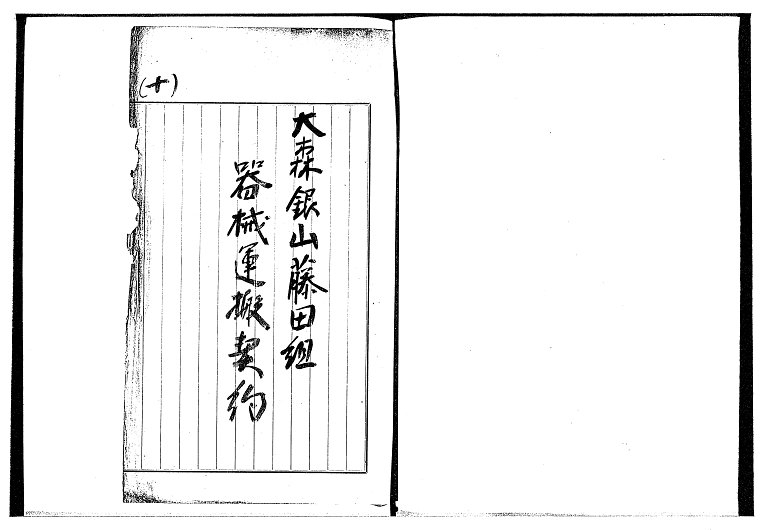 大森銀山藤田組
器械運搬契約
(十)